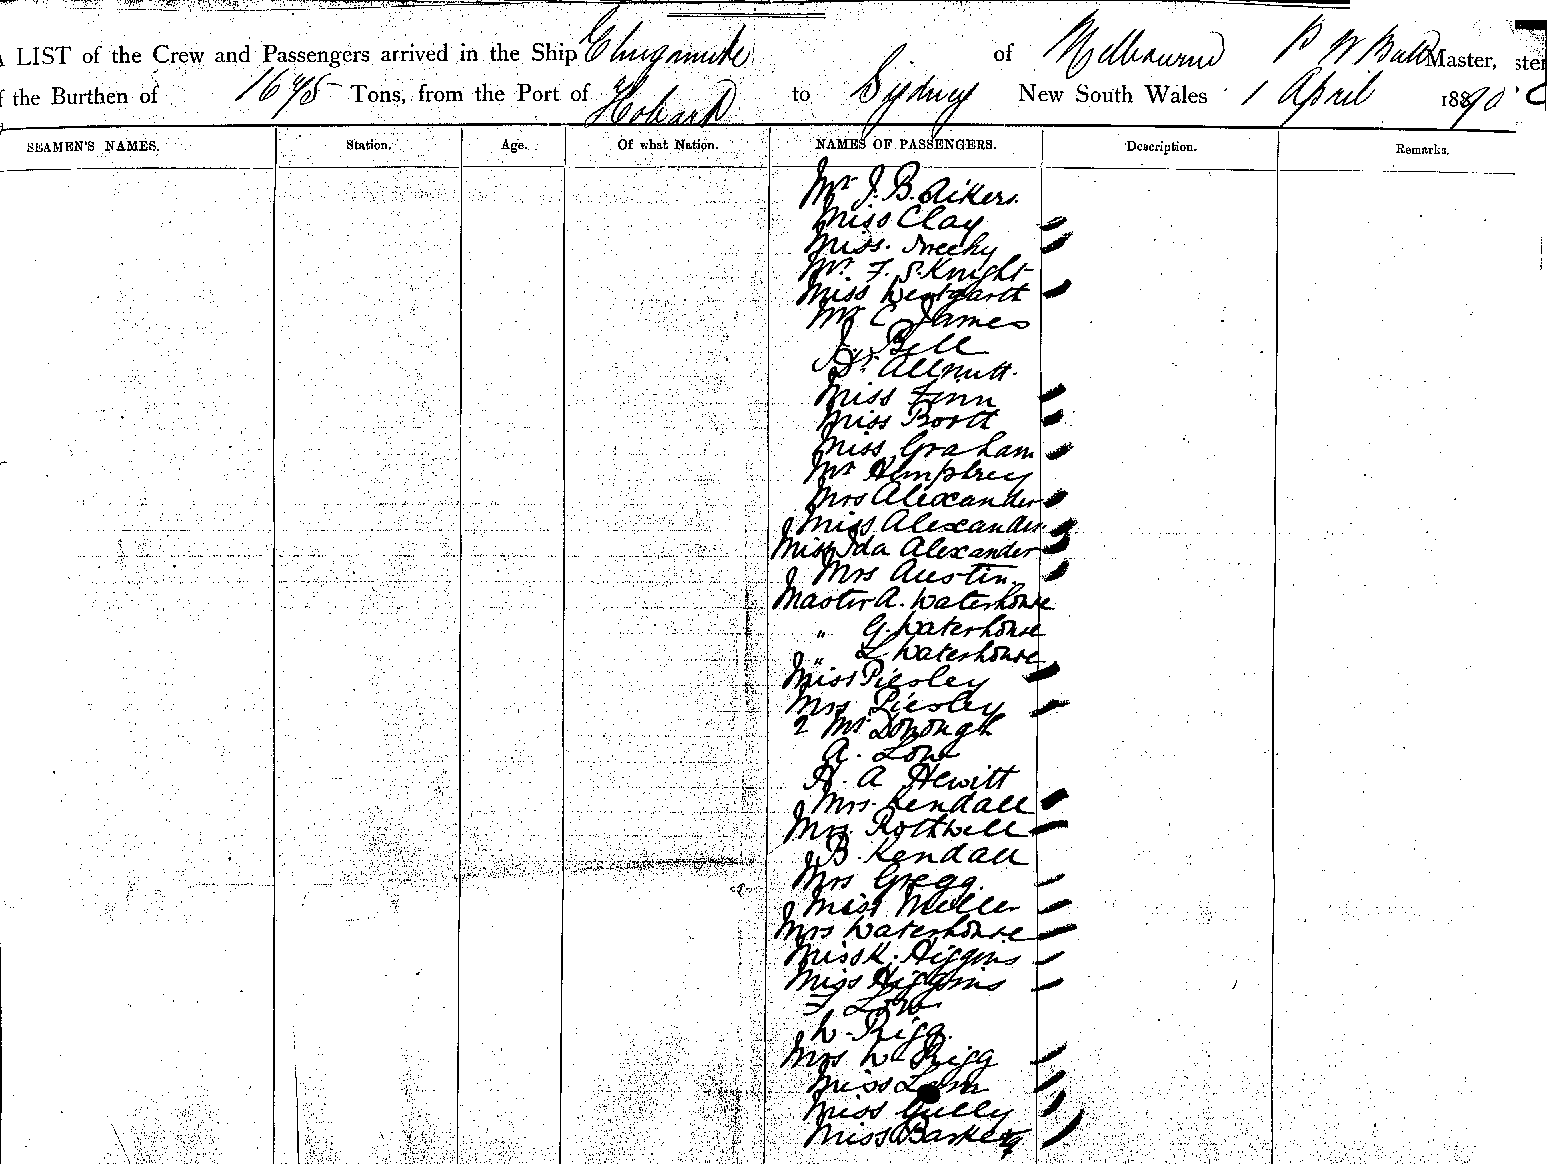 A LIST of the Crew and Passengers arrived in the Ship of Melbourne Master,
of the Burthen of 1675 Tons, from the Port of Hobart to Sydney New South Wales 1 April 1890
SEAMEN'S NAMES. Station. Age. Of what Nation. NAMES OF PASSENGERS. Description. Remarks.
Mr J. B. Aikers
Miss Clay
Miss
Mr. F. S. Knight
Miss Westgarth
Mr C James
J. Bell
Dr. Allnutt
Miss Finn
Miss
Miss Graham
Mr Humphrey
Mrs Alexander
Miss Alexander
Miss Ida Alexander
Mrs Austin
Master A. Waterhouse
" G. Waterhouse
" L. Waterhouse
Miss Piesley
Mrs Piesley
2 McDonough
A. Low
H. A Hewitt
Mrs. Kendall
Mrs Rothwell
B. Kendall
Mrs Gregg
Miss Muller
Mrs Waterhouse
Miss K. Higgins
Miss Higgins
F Low
W. Rigg
Mrs W. Rigg
Miss
Miss Gully
Miss